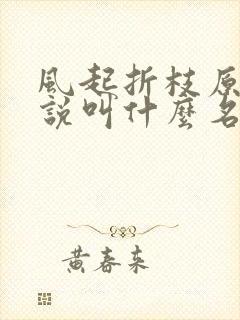 風起折枝原
說叫什麼名
黃春來